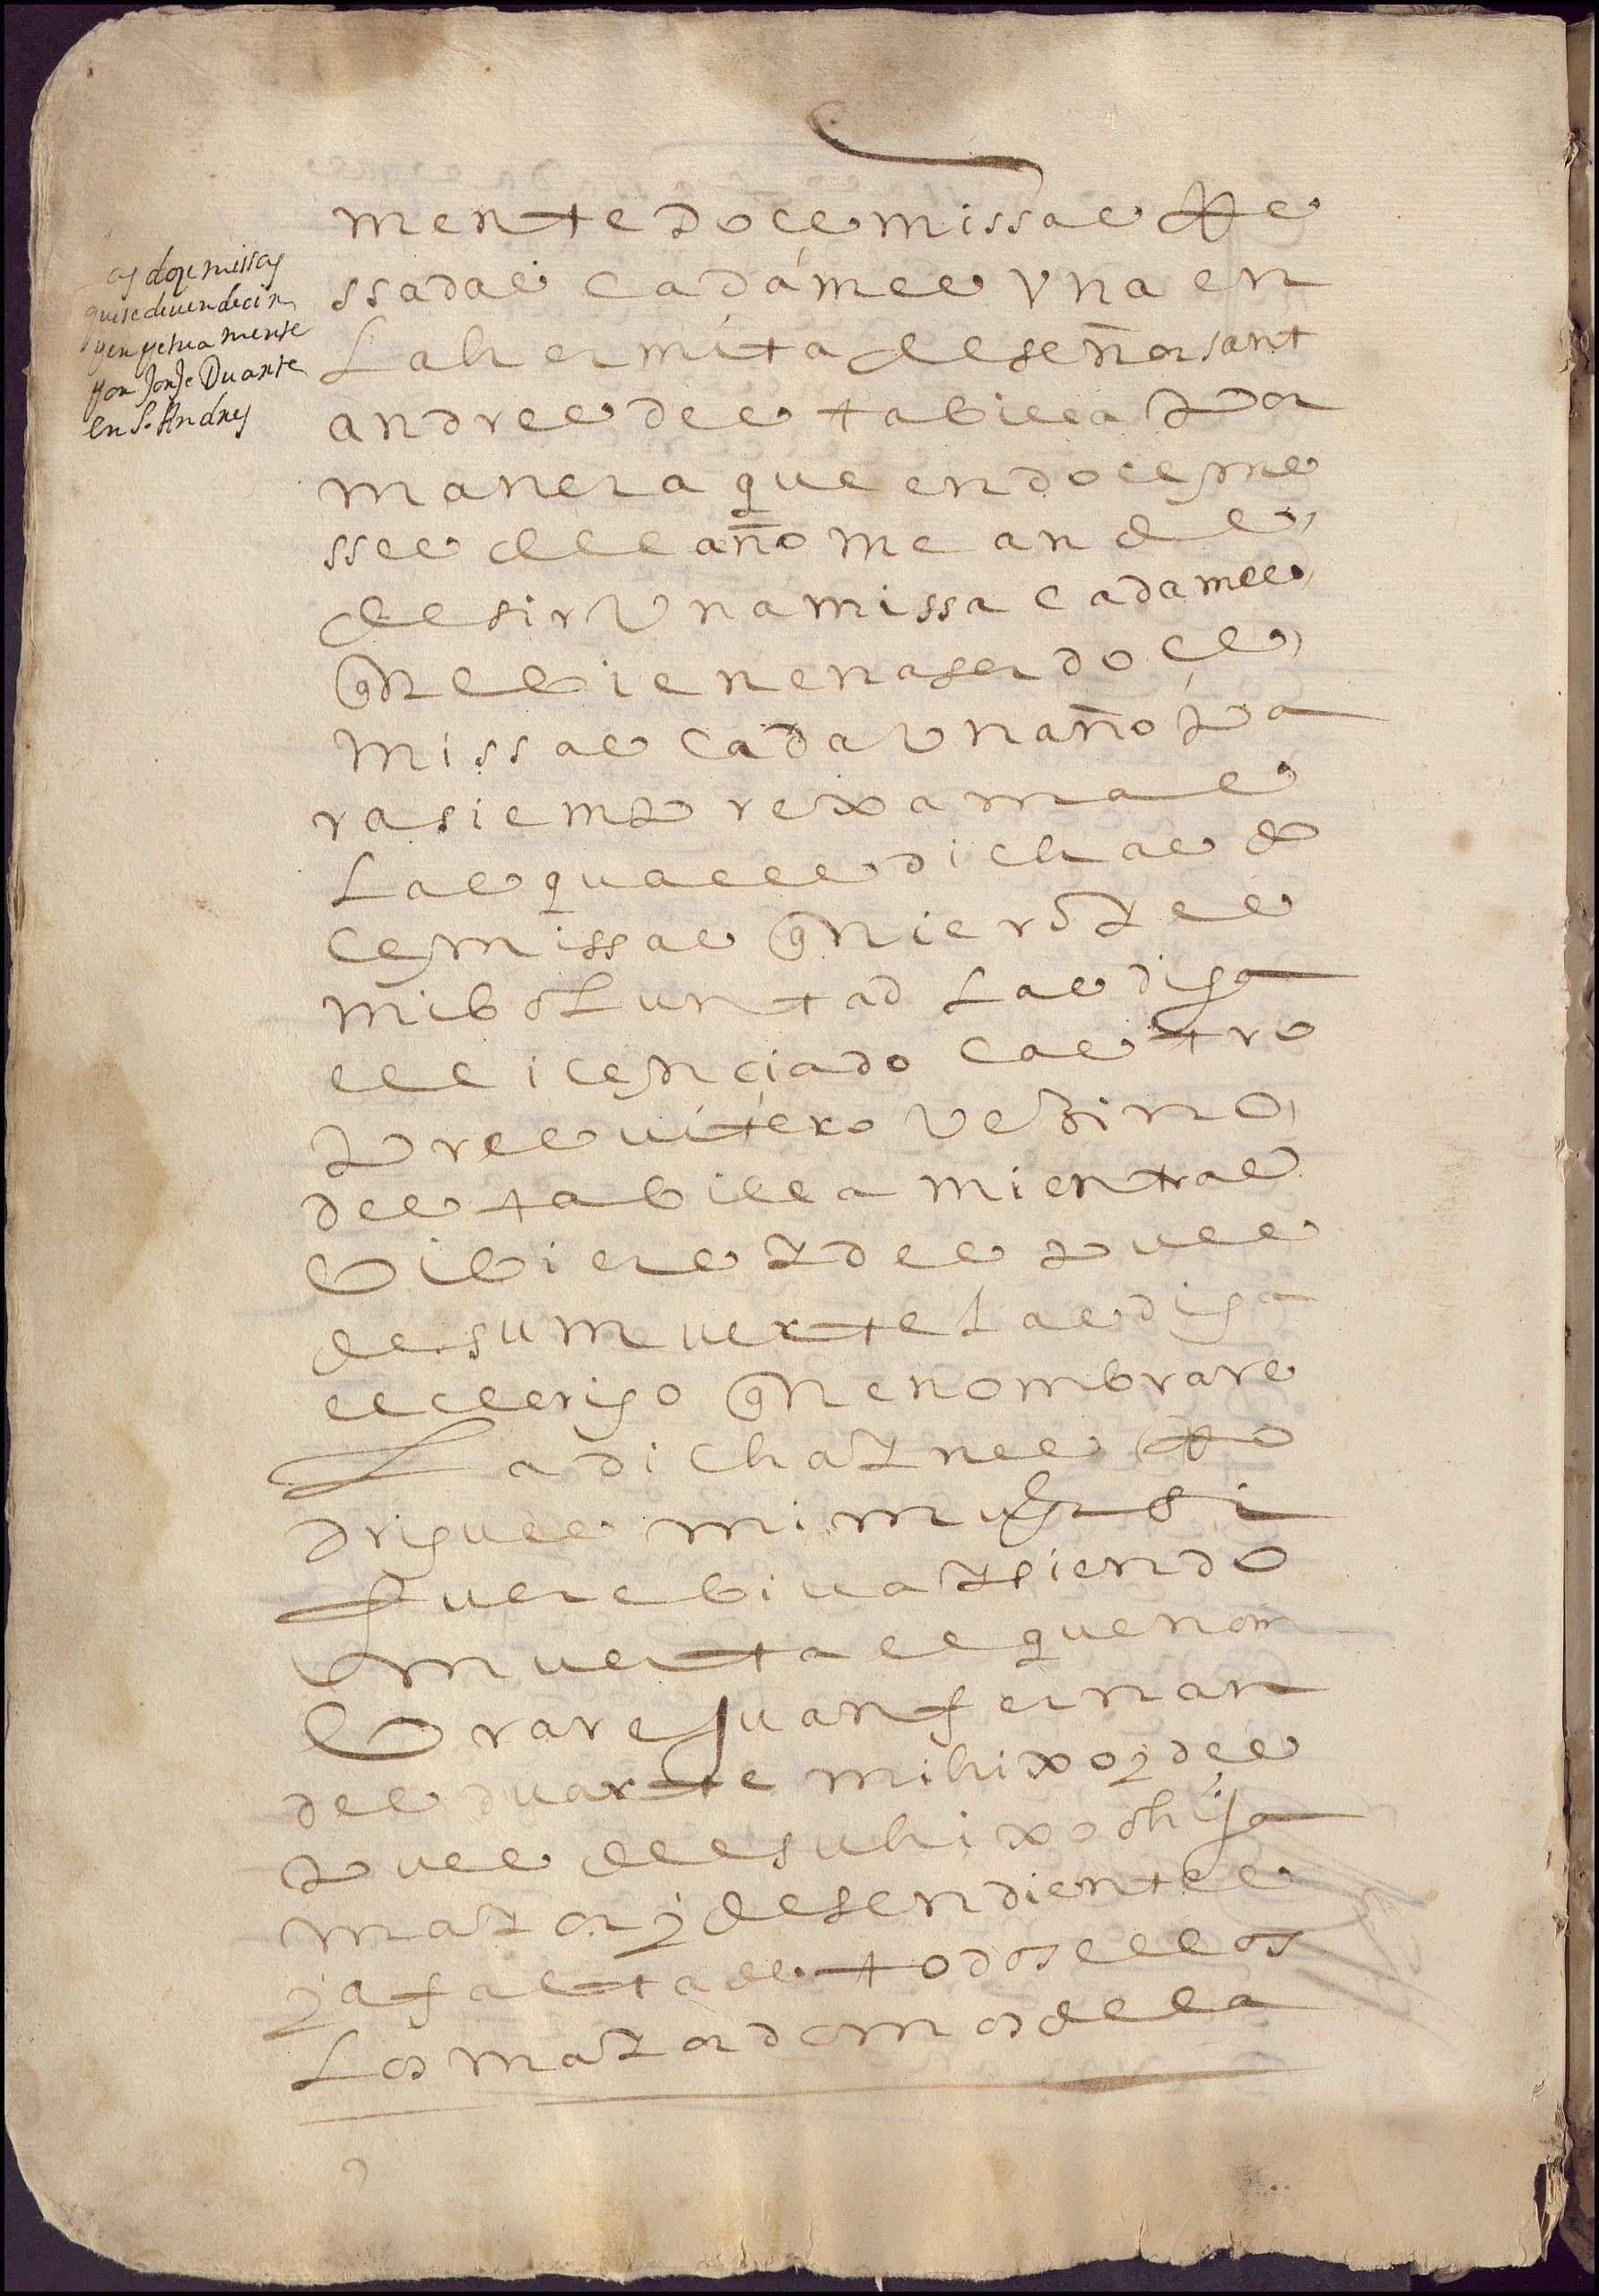 as doze missas
que se deuen decir
perpetuamente
por Jorje Duarte
en S. Andres
mente doce missas Re
ssadas cada mes vna en
La hermita de señor sant
andres de stabilla por
manera que en doce me
sses del año me an de
desir vna missa cada mes
que bienen a ser doce
missas cada vn año pa
ra siempre xamas
Las quales dichas do
ce missas quiero y es
mi boluntad Las diga
el licenciado castro
presuitero vezino
de stabilla mientras
bibiere y des pues
de su muerte Las diga
el clerigo que nombrare
La dicha ynes Ro
drigues mi muger si
fuere biua y siendo
muerta el que nom
brare Juan fernan
des duarte mi hixo y des
pues del su hixo o hija
mayor y desendientes
y a falta de todos ellos
Los mayordomos de la